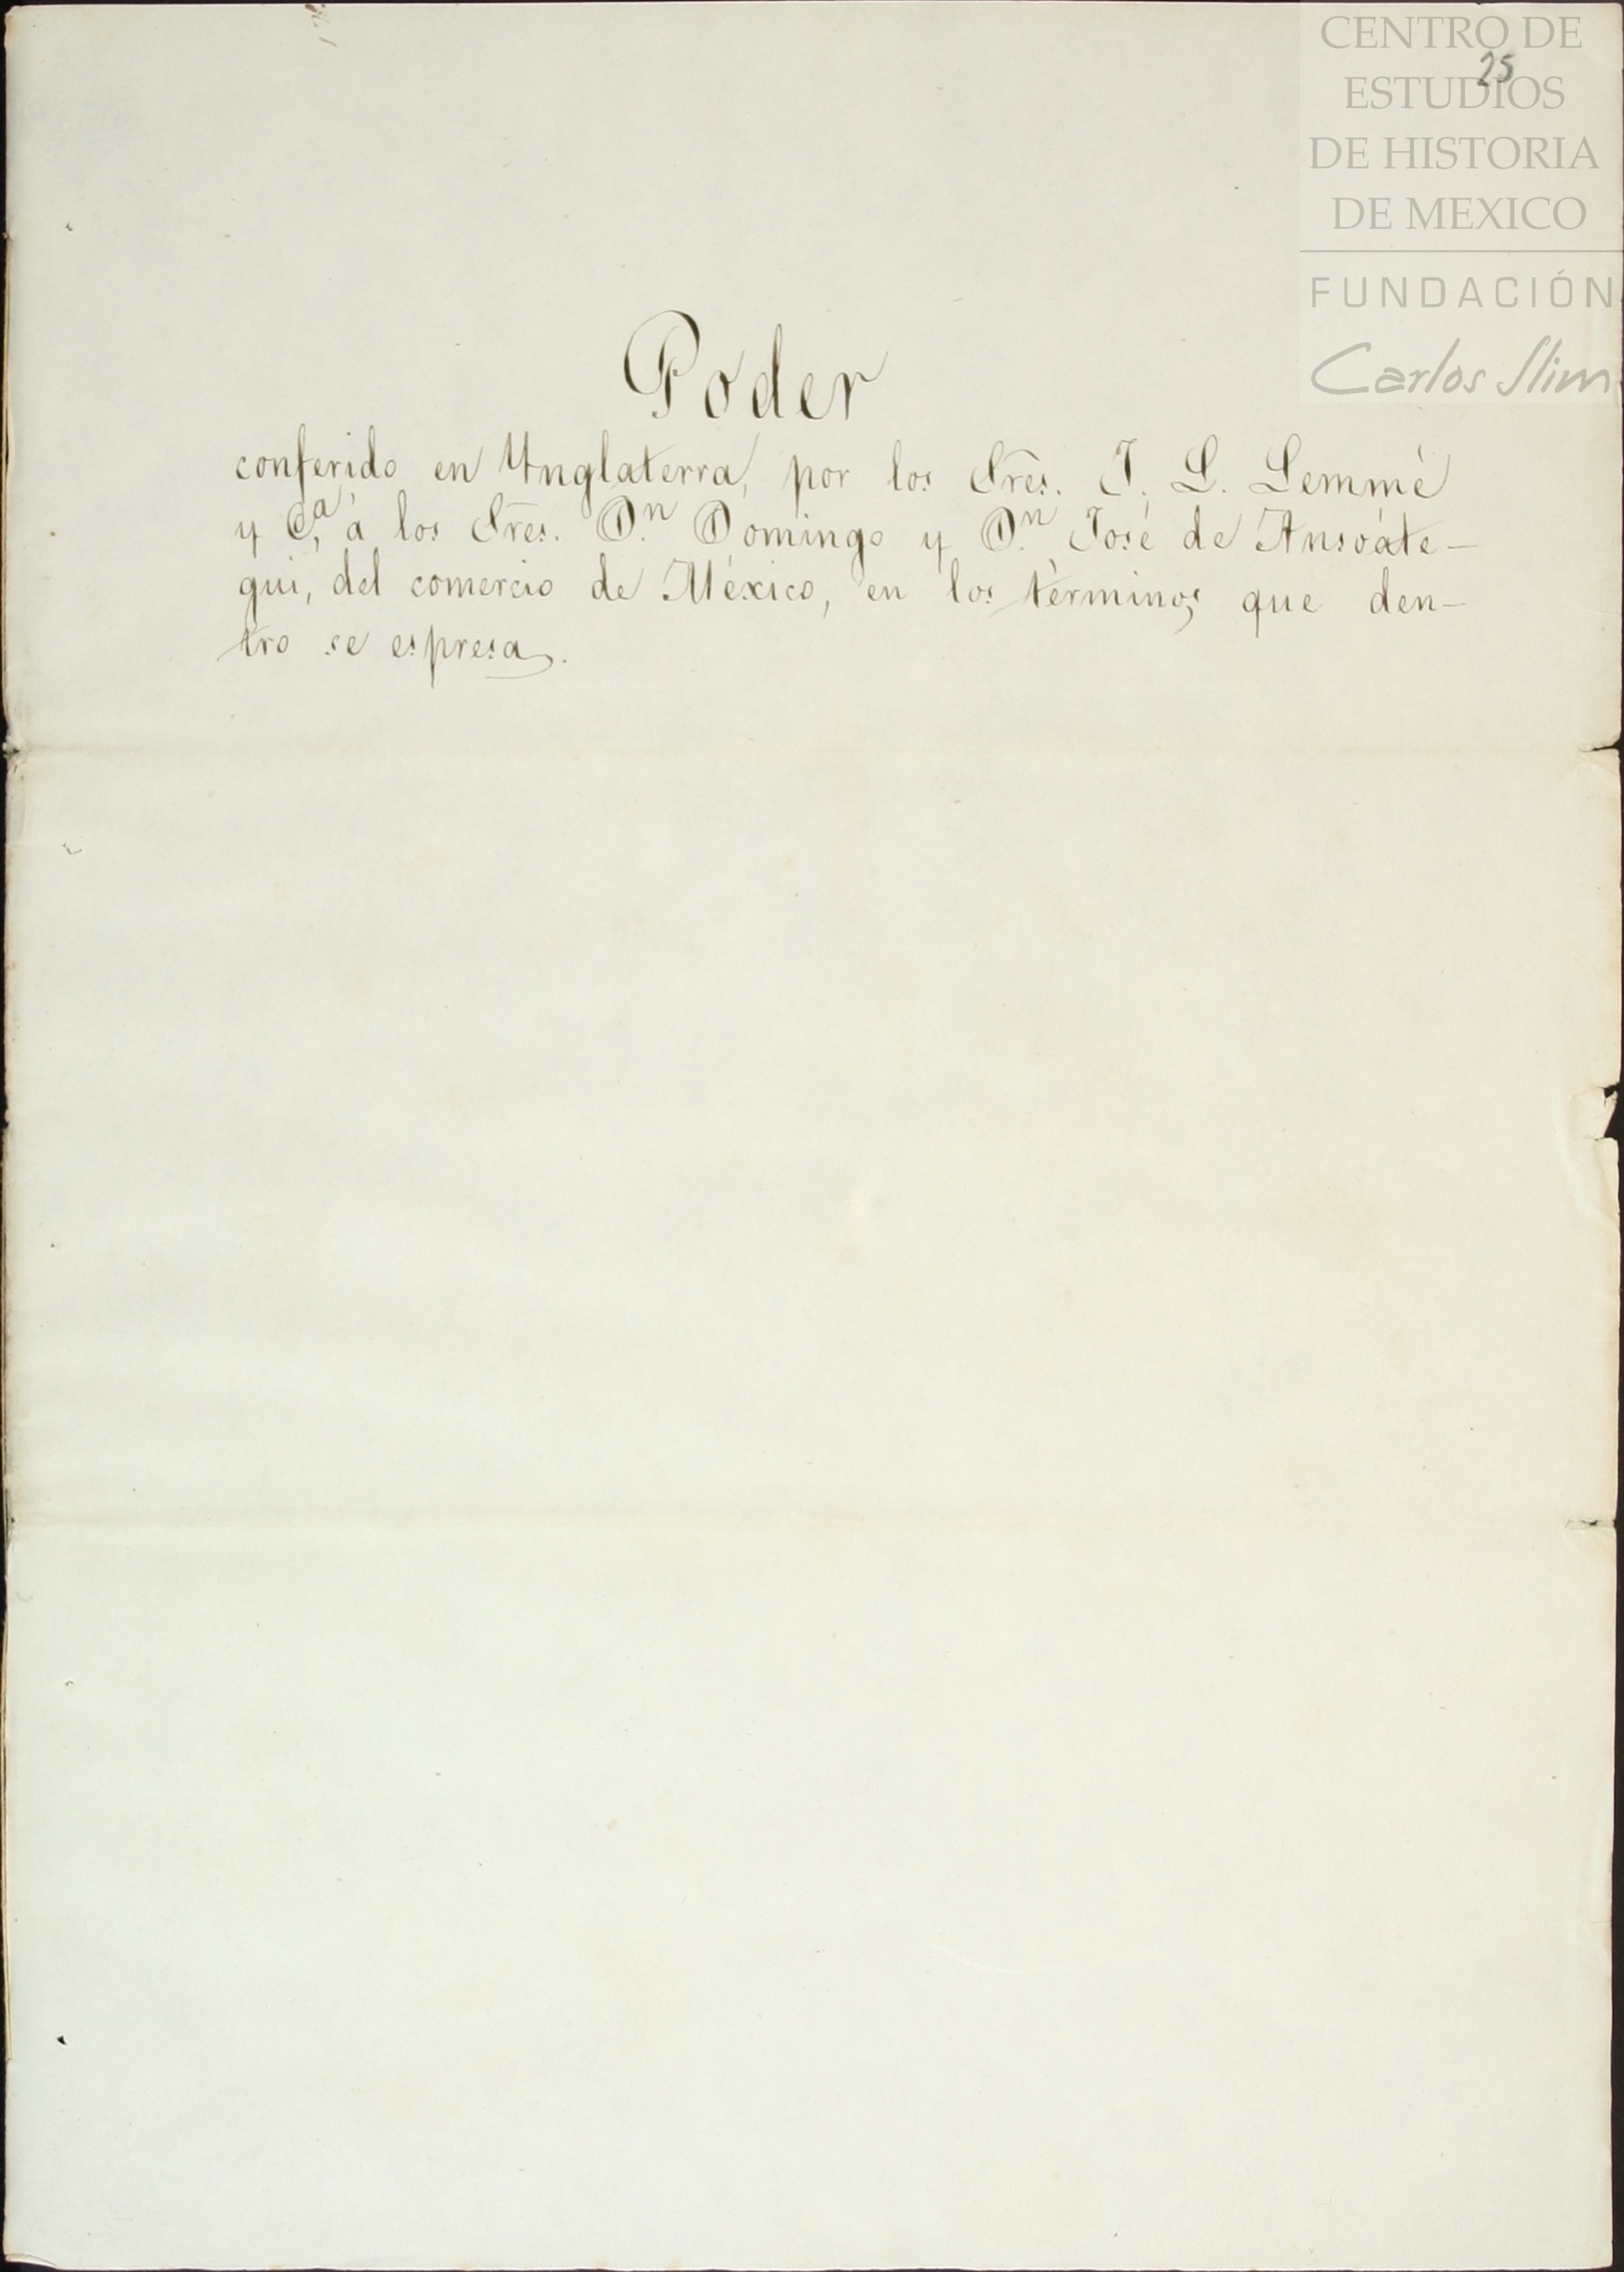 CENTRO DE
ESTUDIOS
DE HISTORIA
DE MEXICO
FUNDACIÓN
Carlos Slim
25
Poder
conferido en Ynglaterra, por los Sres. J. L. Lemmé
y Cª, á los Sres. Dn. Domingo y Dn. José de Ansoáte-
gui, del comercio de México, en los términos que den-
tro se espresa.